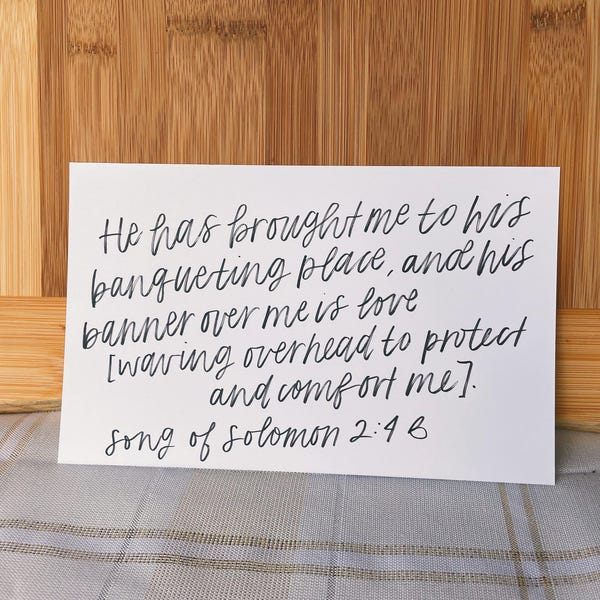 He has brought me to his
banqueting place, and his
banner over me is love
[waving overhead to protect
and comfort me].
song of solomon 2:4 B